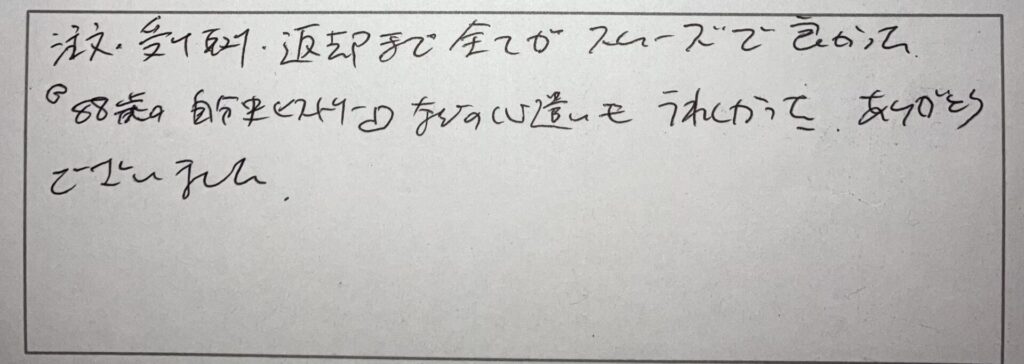 注文・受け取り・返却まで全てがスムーズで良かった
88歳の自分史ヒストリーなどの心遣いもうれしかった。ありがとう
ございました。